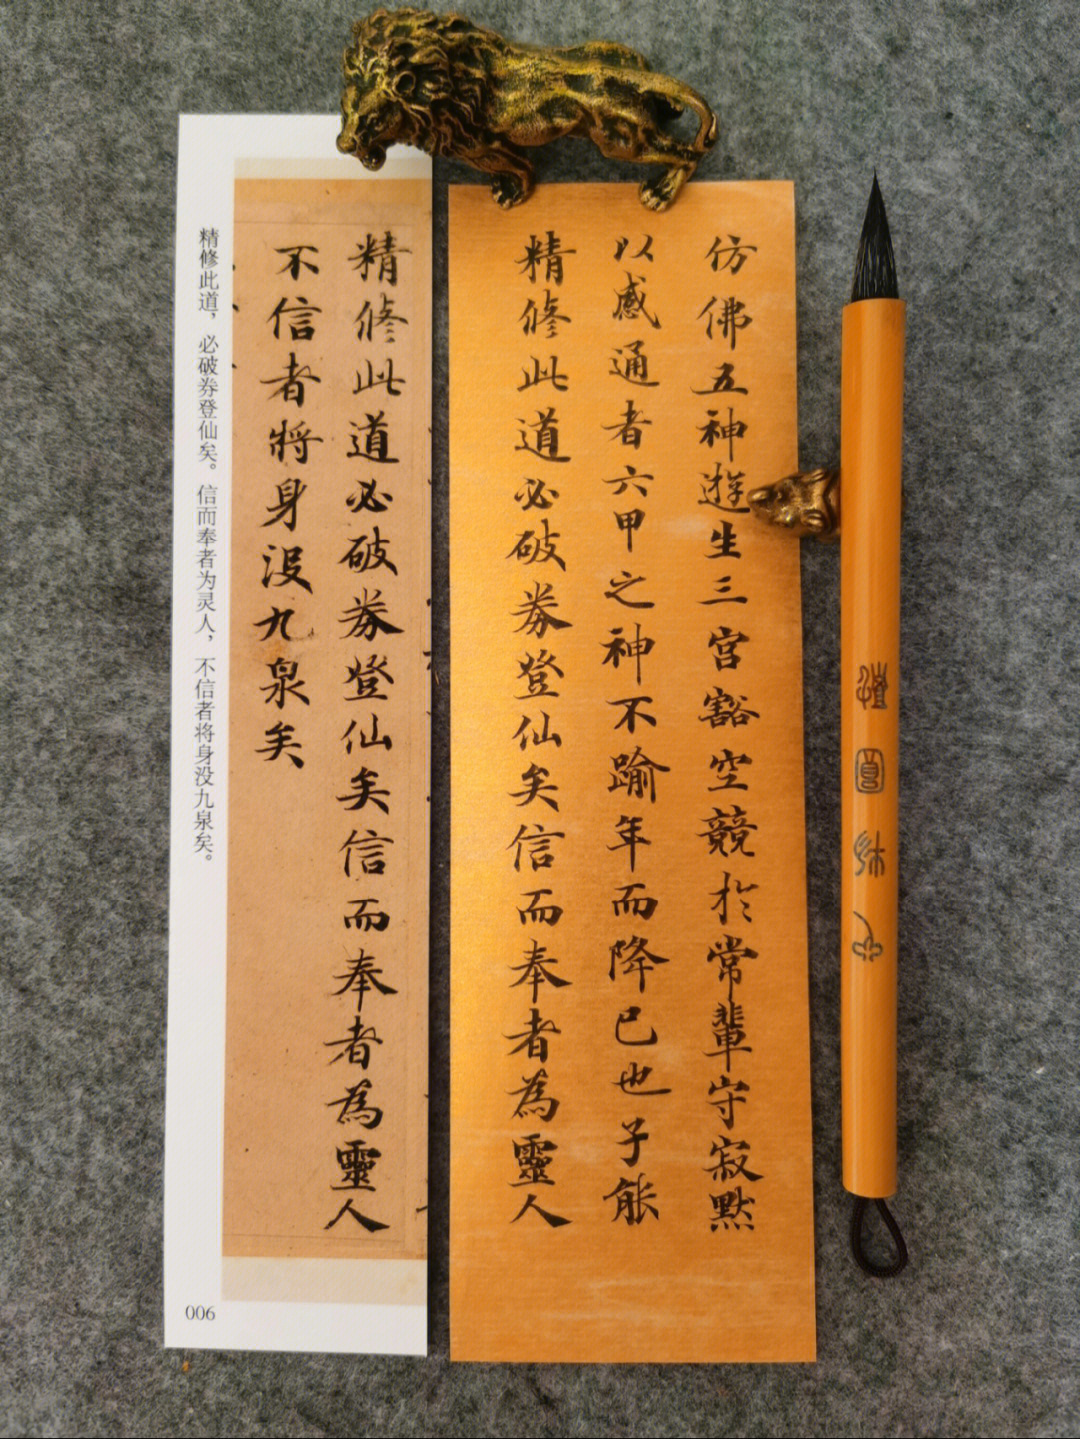 仿佛五神遊生三宮豁空競於常輩守寂默
以感通者六甲之神不踰年而降已也子能
精脩此道必破券登仙矣信而奉者為靈人
精脩此道必破券登仙矣信而奉者為靈人
不信者將身没九泉矣
精修此道，必破券登仙矣。信而奉者为灵人，不信者将身没九泉矣。
006